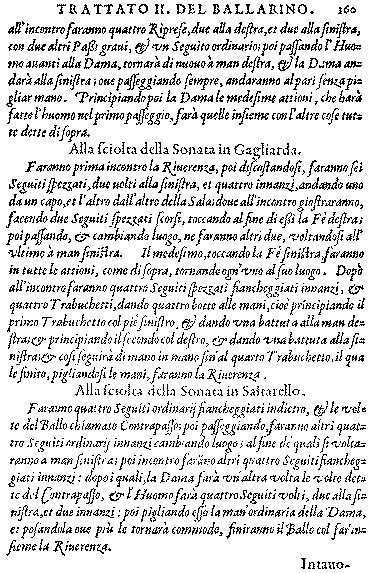 TRATTATO II. DEL BALLARINO. 160
all'incontro faranno quattro Riprese, due alla destra, et due alla sinistra,
con due altri Passi graui, & vn Seguito ordinario; poi passando l'Huo-
mo auanti alla Dama, tornarà di nuouo à man destra, & la Dama an-
darà alla sinistra; oue passeggiando sempre, andaranno al pari senza pi-
gliar mano. Principiando poi la Dama le medesime attioni, che harà
fatte l'huomo nel primo passeggio, farà quelle insieme con l'altre cose tut-
te dette di sopra.
Alla sciolta della Sonata in Gagliarda.
Faranno prima incontro la Riuerenza, poi discostandosi, faranno sei
Seguiti spezzati, due uolti alla sinistra, et quattro innanzi, andando uno
da un capo, et l'altro dall'altro della Sala: doue all'incontro giostraranno,
facendo due Seguiti spezzati scorsi, toccando al fine di essi la Fè destra;
poi passando, & cambiando luogo, ne faranno altri due, voltandosi all'
vltimo à man sinistra. Il medesimo, toccando la Fè sinistra, faranno
in tutte le attioni, come di sopra, tornando ogn'vno al suo luogo. Dopò
all'incontro faranno quattro Seguiti spezzati fiancheggiati innanzi, &
quattro Trabuchetti, dando quattro botte alle mani, cioè principiando il
primo Trabuchetto col piè sinistro, & dando vna battuta alla man de-
stra; & principiando il secondo col destro, & dando vna battuta alla si-
nistra; & così seguirà di mano in mano fin'al quarto Trabuchetto, il qua
le finito, pigliandosi le mani, faranno la Riuerenza.
Alla sciolta della Sonata in Saltarello.
Faranno quattro Seguiti ordinarij fiancheggiati indietro, & le vol-
te del Ballo chiamato Contrapasso: poi passeggiando, faranno altri quat-
tro Seguiti ordinarij innanzi cambiando luogo; al fine de quali si volta-
ranno a man sinistra; poi incontro faráno altri quattro Seguiti fiancheg-
giati innanzi: dopo i quali, la Dama farà vn'altra volta le volte det-
te del Contrapasso, & l'Huomo farà quattro Seguiti volti, due alla si-
nistra, et due innanzi: poi pigliando esso la man'ordinaria della Dama,
et posandola oue più le tornarà commodo, finiranno il Ballo col far'in-
sieme la Riuerenza.
Intauo-